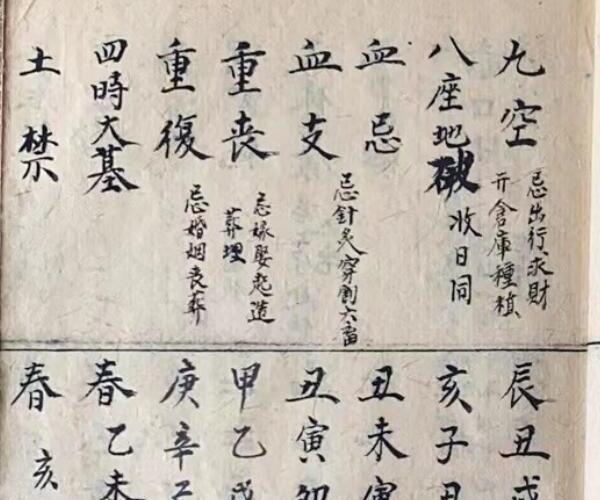 九空
忌出行求財
开倉庫種植
八座地破
收日同
血忌
血支
忌針灸穿割六畜
重丧
忌嫁娶起造
葬埋
重復
忌婚姻丧葬
四時大墓
土禁
辰丑戌
亥子丑
丑未寅
丑寅卯
甲乙戊
庚辛
春乙未
春亥